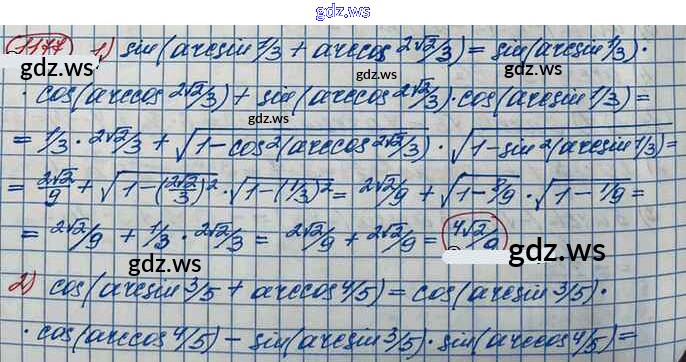 gdz.ws
1177 1) sin(arcsin 1/3 + arccos 2√2/3) = sin(arcsin 1/3) ·
gdz.ws
gdz.ws
· cos(arccos 2√2/3) + sin(arccos 2√2/3) · cos(arcsin 1/3) =
gdz.ws
= 1/3 · 2√2/3 + √(1-cos²(arccos 2√2/3)) · √(1-sin²(arcsin 1/3)) =
= 2√2/9 + √(1-(2√2/3)²) · √(1-(1/3)²) = 2√2/9 + √(1-8/9) · √(1-1/9) =
= 2√2/9 + 1/3 · 2√2/3 = 2√2/9 + 2√2/9 = 4√2/9
gdz.ws
gdz.ws
2) cos(arcsin 3/5 + arccos 4/5) = cos(arcsin 3/5) ·
· cos(arccos 4/5) - sin(arcsin 3/5) · sin(arccos 4/5) =
gdz.ws
gdz.ws